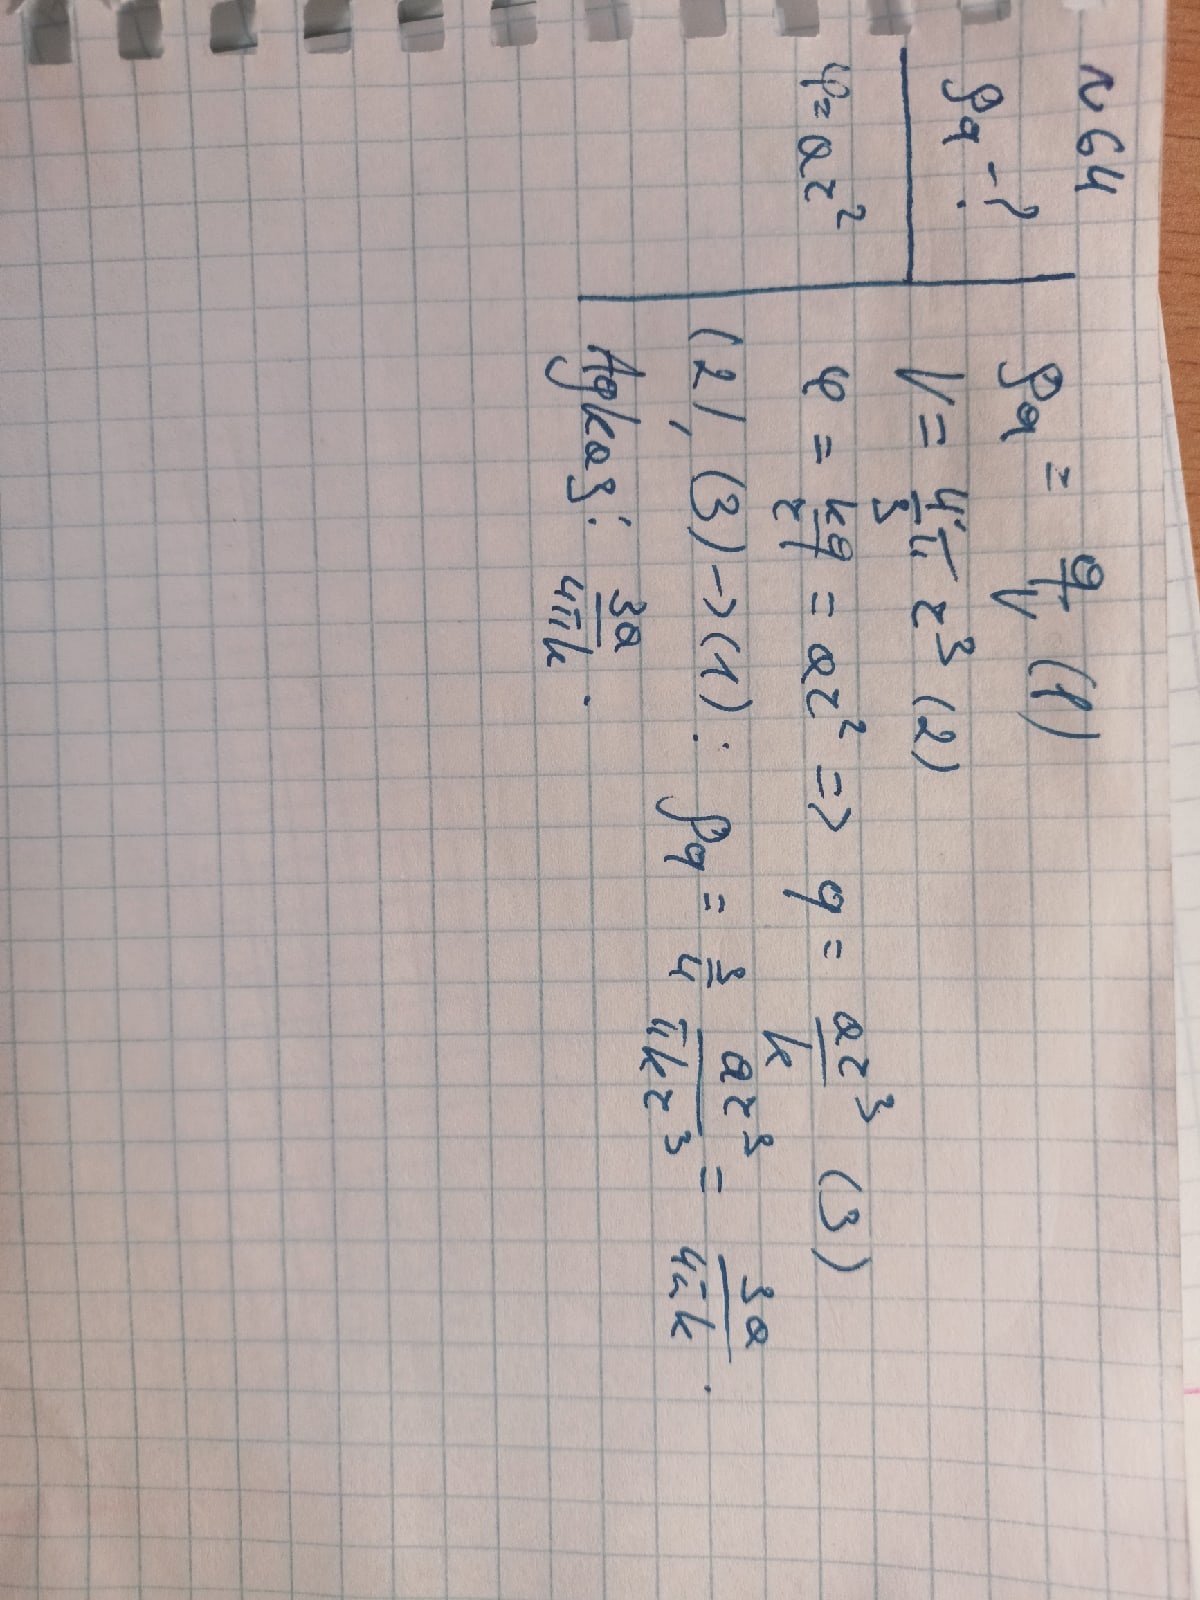 № 64
ρq - ?
φ = ar²
ρq = q/V (1)
V = 4/3 π r³ (2)
φ = kq/r = ar² => q = ar³/k (3)
(2), (3) -> (1): ρq = 3/4 ar³/πkr³ = 3a/4πk.
Адказ: 3a/4πk.